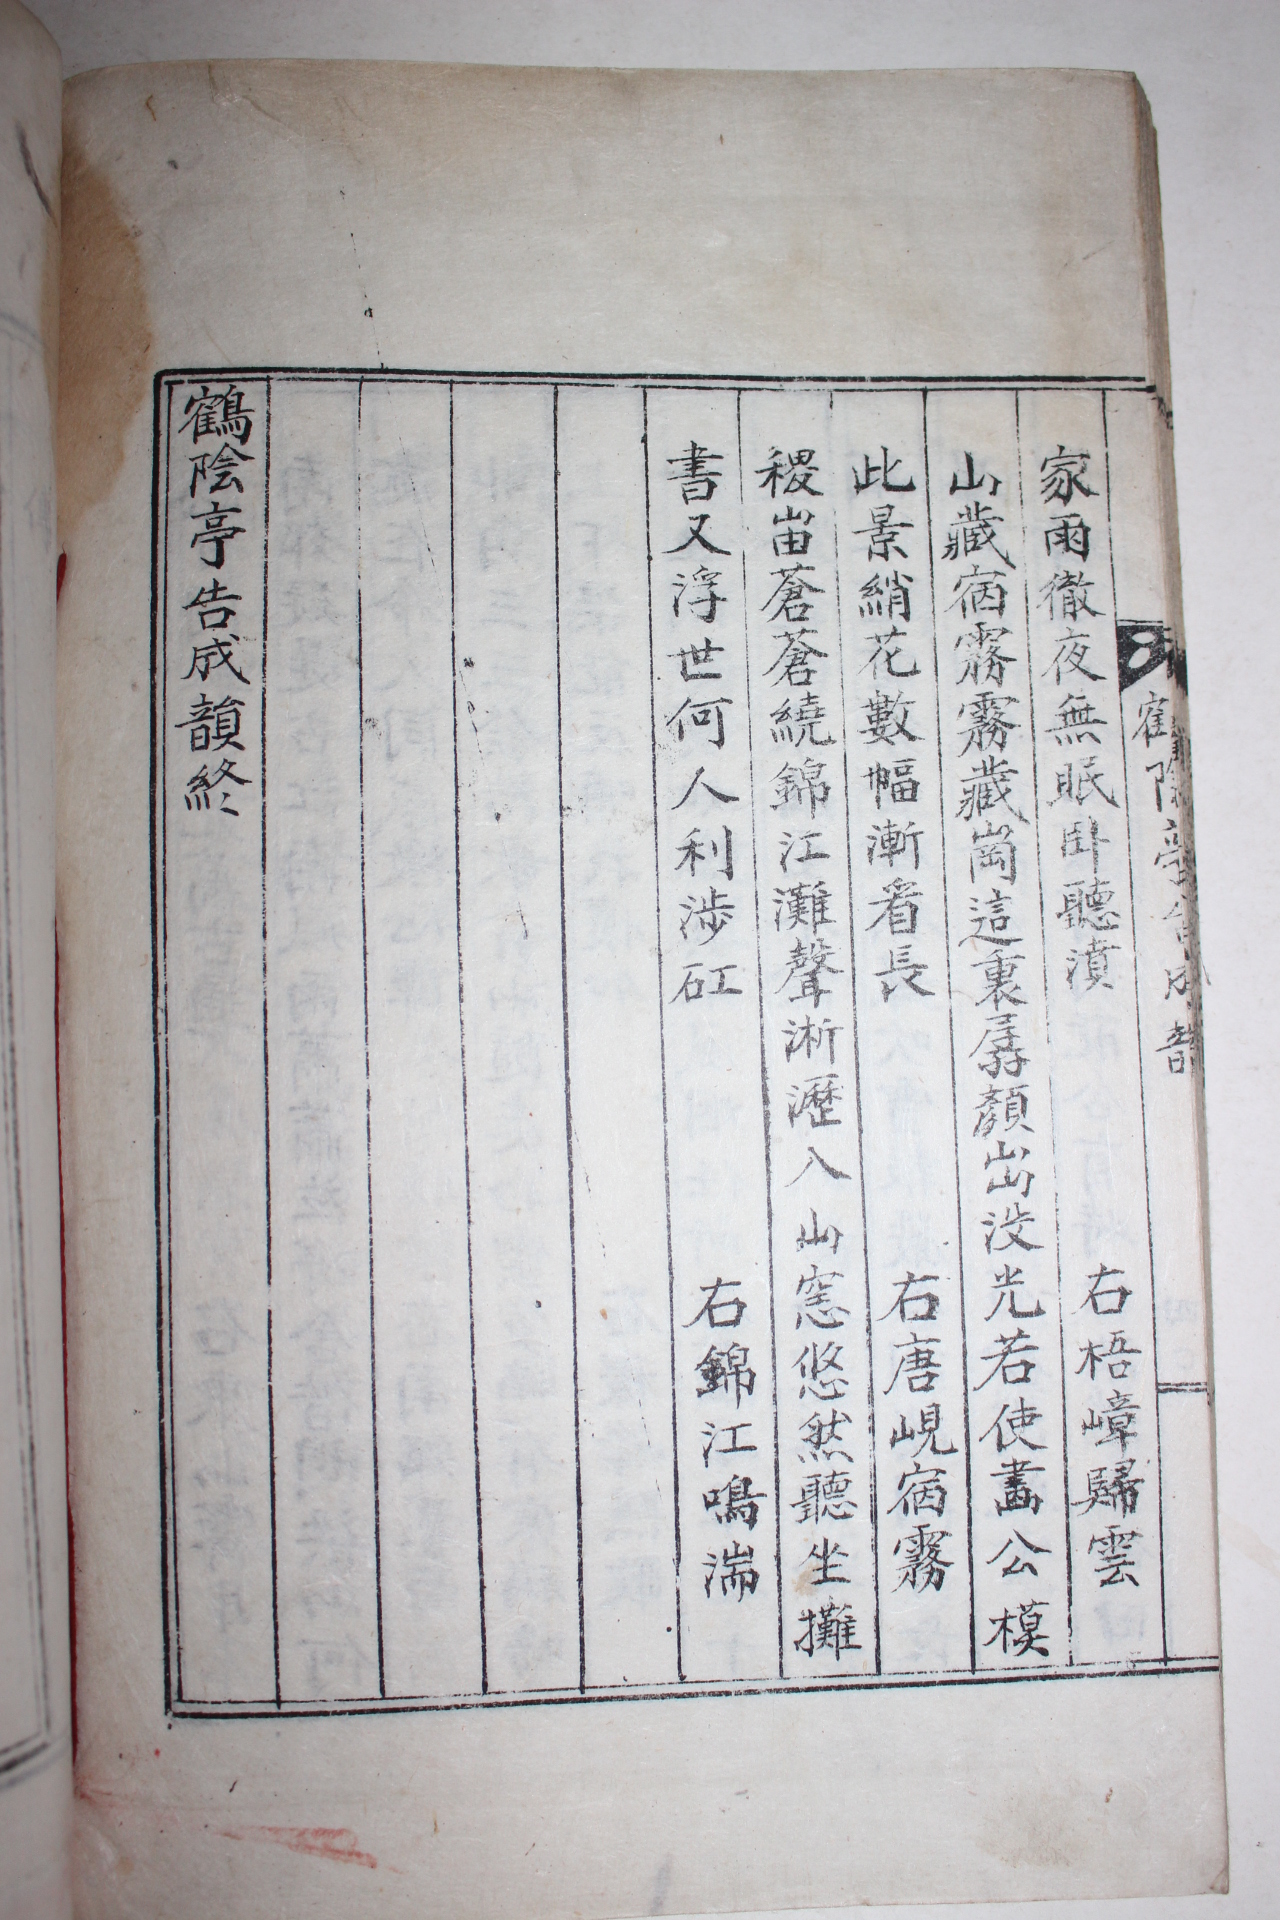 鶴陰亭告成韻
家雨徹夜無眠卧聽濆　右梧嶂歸雲
山藏宿霧霧藏崗這裏孱顏出沒光若使畵公模
此景綃花數幅漸看長　右唐峴宿霧
稷峀蒼蒼繞錦江灘聲淅瀝入山窓悠然聽坐攤
書又浮世何人利涉矼　右錦江鳴湍
鶴陰亭告成韻終